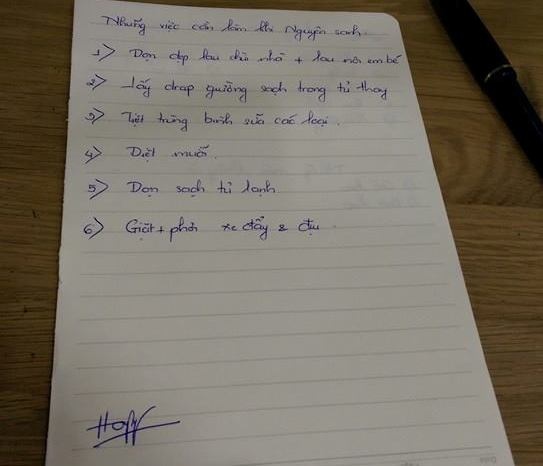 Những việc cần làm khi Nguyên sanh.
1> Dọn dẹp lau chùi nhà + lau nôi em bé
2> Lấy drap giường sạch trong tủ thay
3> Tiệt trùng bình sữa các loại.
4> Diệt muỗi.
5> Dọn sạch tủ lạnh
6> Giặt + phơi xe đẩy & địu